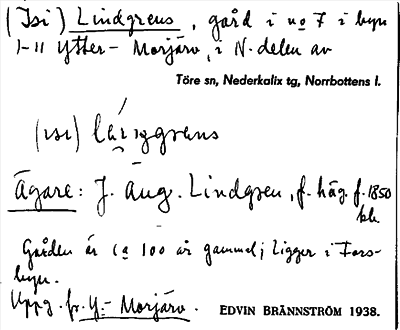 (Isi) Lindgrens, gård i no 7 i byn
1-11 Ytter-Morjärv, i N. delen av
Töre sn, Nederkalix tg, Norrbottens l.
(ısı)
Ägare: J. Aug. Lindgren, f. häg. f. 1850
Gården är ca 100 år gammel; ligger i Fors-
byn.
Uppg. fr. Y.-Morjärv. EDVIN BRÄNNSTRÖM 1938.